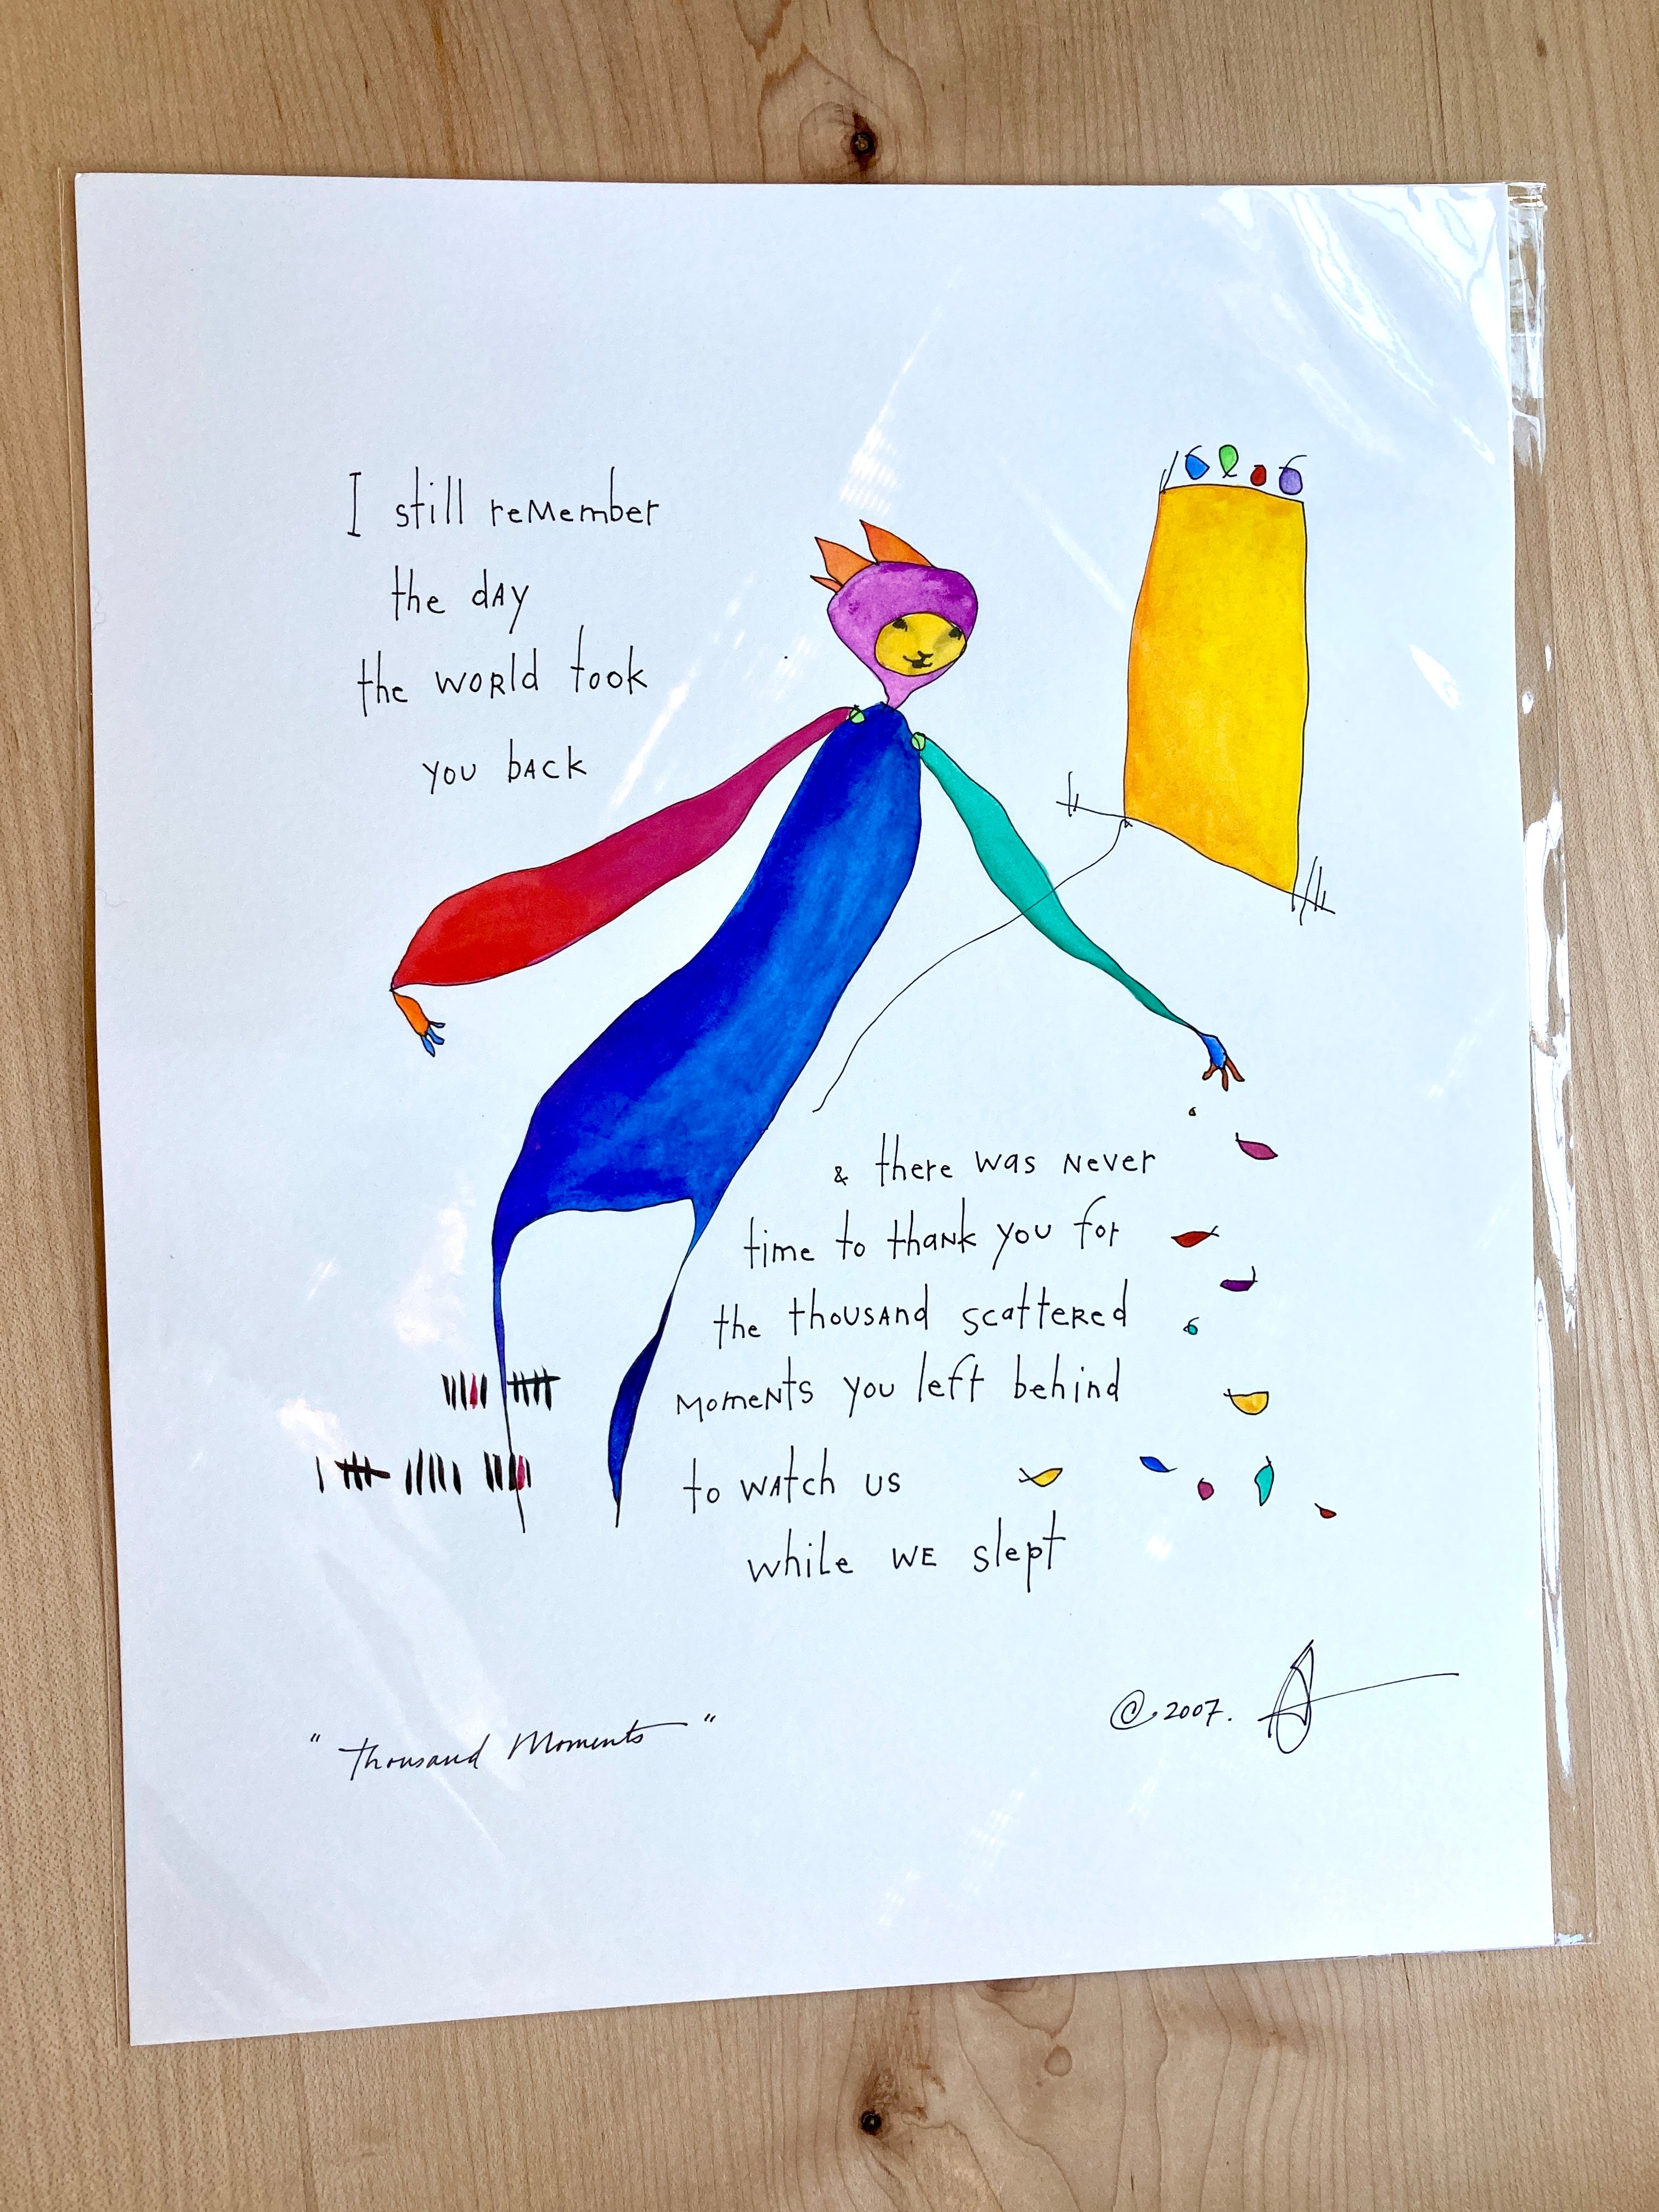 I still remember
the day
the world took
you back
& there was never
time to thank you for
the thousand scattered
moments you left behind
to watch us
while we slept
"Thousand Moments"
© 2007.